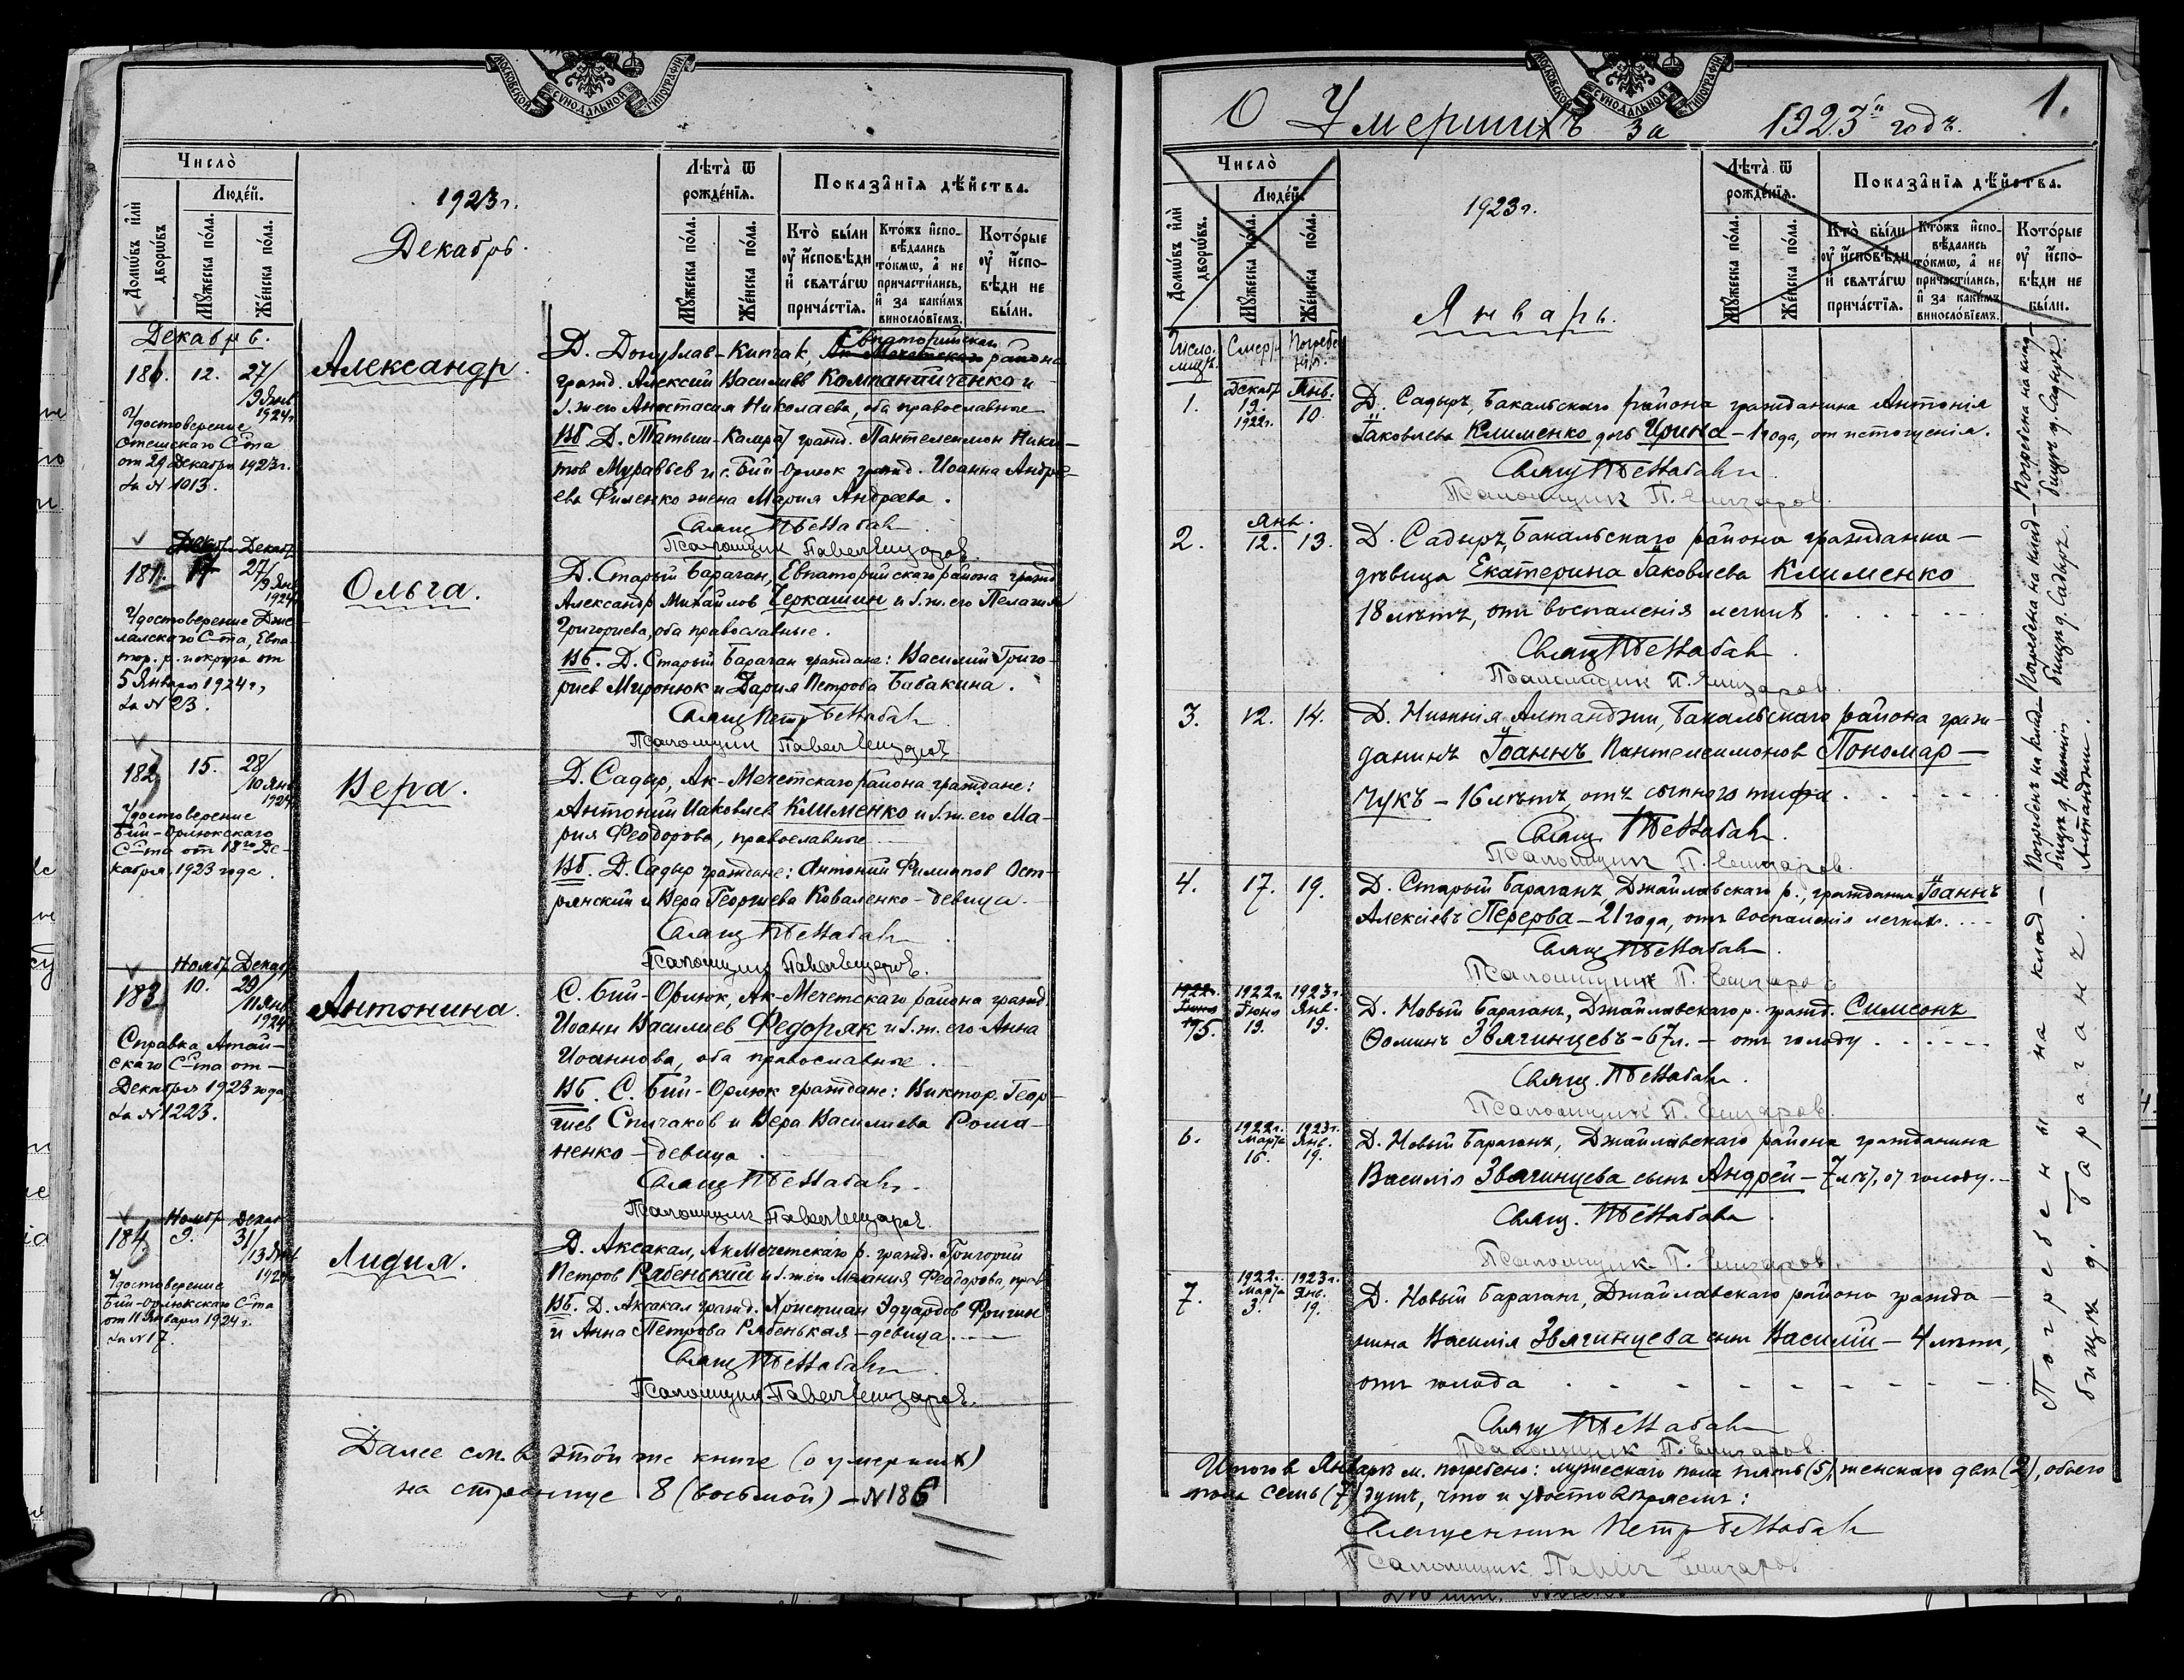 МОСКОВСКОЙ СѴНОДАЛЬНОЙ ТИПОГРАФІИ
Число̀
Людéй.
Домѡ́въ и҆лѝ дворѡ́въ
Мꙋ́жеска по́ла.
Же́нска по́ла.
1923 г.
Декабрь.
Лѣ̑та ѿ рожде́нїѧ.
Мꙋ́жеска по́ла.
Же́нска по́ла.
Показа̑нїѧ дѣ́йства.
Кто̀ бы́ли ᲂу҆ и҆́сповѣди и҆ свѧта́гѡ прича́стїѧ.
Кто́жъ и҆сповѣ́дались то́кмѡ, а҆ не причасти́лись, и҆ за каки́мъ винослѡ́вїемъ.
Кото́рые ᲂу҆ и҆́сповѣди не бы́ли.
Декабрь.
180. 12. 27/
/9 Янв
1924 г
Удостоверение
Отешскаго С-та
от 29 Декабря 1923 г.
За № 1013.
Александр.
Евпаторийскаго
Д. Донузлав-Кипчак, Ак-Мечетскаго района
гражд. Алексий Василиев Компанийченко и
з. ж. его Анастасия Николаева, оба православные
Вб. Д. Татыш-Комрат гражд. Пантелеимон Ники-
тов Муравьев и с. Бий-Орлюк гражд. Иоанна Андре-
ева Филенко жена Мария Андреева.
Свящ Петр
Псаломщик Павел Елизаров.
Декабр. Декабр
181. 14 27/
/9 Янв
1924
Удостоверение Джей-
лавскаго С-та, Евпа-
тор. р. и округа от
5 Января 1924 г,
За № 23.
Ольга.
Д. Старый Бараган, Евпаторийскаго района гражд
Александр Михаилов Черкашин и з. ж. его Пелагия
Григориева, оба православные.
Вб. Д. Старый Бараган граждане: Василий Григо-
риев Миронюк и Дария Петрова Бабакина.
Свящ Петр
Псаломщик Павел Елизаров
182 15. 28/
/10 Янв
1924
Удостоверение
Бий-Орлюкскаго
С-та от 18го Де-
кабря 1923 года.
Вера.
Д. Садыр, Ак-Мечетскаго района граждане:
Антоний Иаковлев Клименко и з. ж. его Ма-
рия Феодорова, православные
Вб. Д. Садыр граждане: Антоний Филиппов Ост-
рянский и Вера Георгиева Коваленко - девица.
Свящ
Псаломщик Павел Елизаров.
Ноябр Декабр
183 10. 29/
/11 Янв
1924
Справка Атай-
скаго С-та от —
Декабря 1923 года
За № 1223.
Антонина.
С. Бий-Орлюк, Ак-Мечетскаго района гражд
Иоанн Василиев Федоряк и з. ж. его Анна
Иоаннова, оба православные
Вб. С. Бий-Орлюк граждане: Виктор Геор-
гиев Спичаков и Вера Василиева Рома-
ненко - девица
Свящ
Псаломщик Павел Елизаров.
Ноябр Декаб
184 9. 31/
/13 Янв
1924
Удостоверение
Бий-Орлюкскаго С-та
от 11 Января 1924 г.
За № 17.
Лидия.
Д. Аксакал, Ак Мечетскаго р. гражд. Григорий
Петров Рябенький и з. жен Мелания Феодорова, прав
Вб. Д. Аксакал гражд. Христиан Эдуардов Фригин
и Анна Петрова Рябенькая - девица.
Свящ
Псаломщик Павел Елизаров.
Далее см. в этой же книге (о умерших)
на странице 8 (восьмой) - № 186
МОСКОВСКОЙ СѴНОДАЛЬНОЙ ТИПОГРАФІИ
О Умершихъ за 1923й годъ.
1.
Число̀
Людéй.
Домѡ́въ и҆лѝ дворѡ́въ.
Мꙋ́жеска по́ла.
Же́нска по́ла.
1923 г.
Январь.
Лѣ̑та ѿ рожде́нїѧ.
Мꙋ́жеска по́ла.
Же́нска по́ла.
Показа̑нїѧ дѣ́йства.
Кто̀ бы́ли ᲂу҆ и҆́сповѣди и҆ свѧта́гѡ прича́стїѧ.
Кто́жъ и҆сповѣ́дались то́кмѡ, а҆ не причасти́лись, и҆ за каки́мъ винослѡ́вїемъ.
Кото́рые ᲂу҆ и҆́сповѣди не бы́ли.
Число. Смерт Погребе
1. Декабр 19. 1922 г. Янв. 10.
Д. Садыръ, Бакальскаго района гражданина Антонія
Іаковлева Клименко дочь Ирина - 1 года, от истощенія.
Свящ
Псаломщик П. Елизаров.
Янв.
2. 12. 13.
Д. Садыръ, Бакальскаго района гражданка -
дѣвица Екатерина Іаковлева Клименко
18 лѣтъ, от воспаленія легкихъ
Свящ
Псаломщик П. Елизаров.
3. 12. 14.
Д. Нижнія Алманджи, Бакальскаго района граж-
данинъ Іоаннъ Пантелеимонов Пономар-
чукъ - 16 лѣтъ, отъ сыпного тифа
Свящ
Псаломщик П. Елизаров.
4. 17. 19.
Д. Старый Бараганъ, Джайлавскаго р., гражданин Іоаннъ
Алексіевъ Перерва - 21 года, отъ воспаленія легкихъ.
Свящ
Псаломщик П. Елизаров
1922 г. Іюня 19
5. 1922 г. Іюня 19. 1923 г. Янв. 19.
Д. Новый Бараганъ, Джайлавскаго р. гражд. Симеонъ
Ѳоминъ Звягинцевъ - 67 л. - отъ голоду
Свящ.
Псаломщик П. Елизаров.
6. 1922 г. Марта 16. 1923 г. Янв. 19.
Д. Новый Бараганъ, Джайлавскаго района гражданина
Василія Звягинцева сынъ Андрей - 7 лѣт, от голоду.
Свящ.
Псаломщик П. Елизаров.
7. 1922 г. Марта 3. 1923 г. Янв. 19.
Д. Новый Бараганъ, Джайлавскаго района гражда-
нина Василія Звягинцева сын Василій - 4 лѣтъ,
отъ голода
Свящ
Псаломщик П. Елизаров.
Погребена на клад-
бищѣ д. Садыръ.
Погребена на клад-
бищѣ д. Садыръ.
Погребенъ на клад-
бищѣ д. Нижнія
Алманджи.
Погребены на клад-
бищѣ д. Бараганъ.
Итого в Январѣ м. погребено: мужескаго пола пять (5), женскаго двѣ (2), обоего
пола семь (7) душъ, что и удостовѣряемъ:
Священник Петр
Псаломщик Павел Елизаров